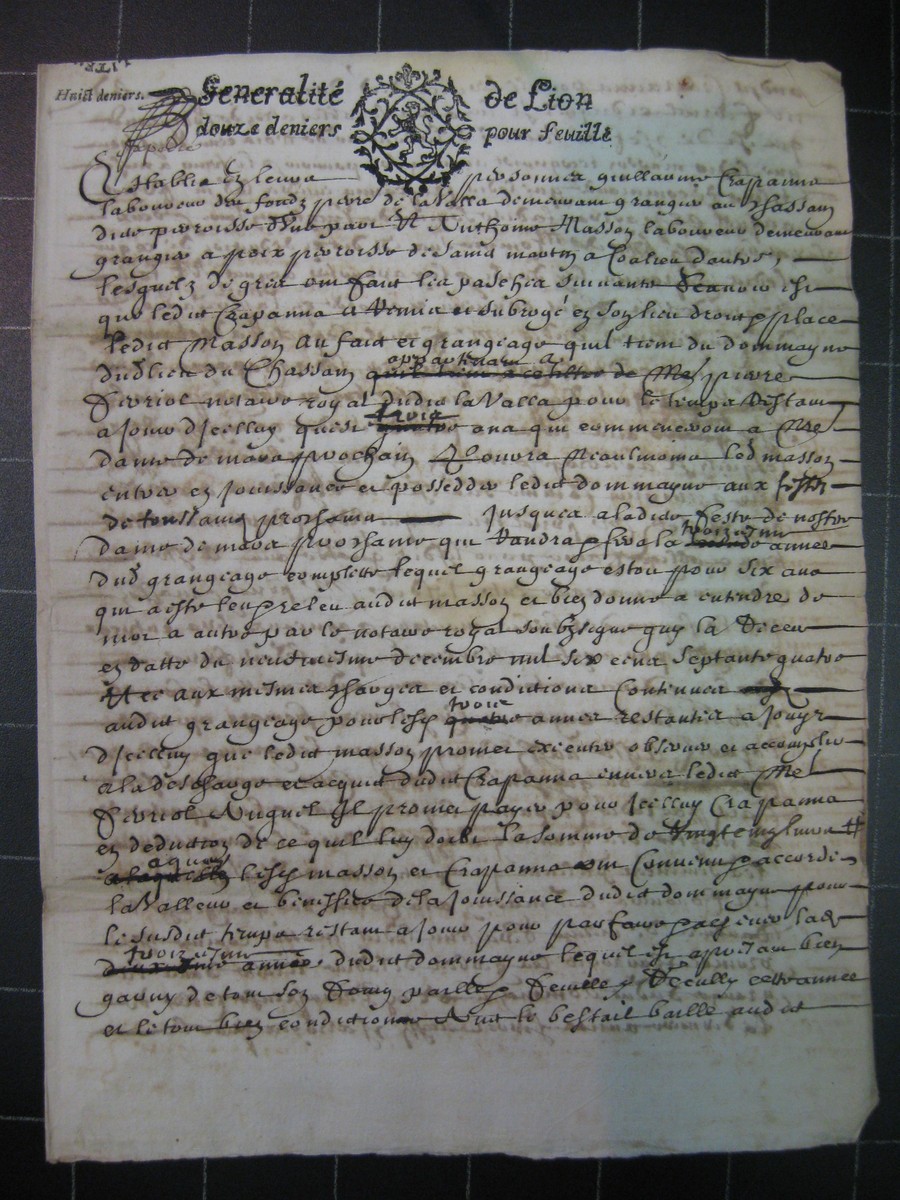 Huict deniers.
Generalité de Lion
douze deniers pour feuille
Establis en leurs personnes guillaume Crapanne
laboureur du fondz pres de la Valla demeurant grangier au Chassain
dicte parroisse d'une part Et Anthoine Masson laboureur demeurant
grangier a poix parroisse de sainct martin a Coalieu d'autre,
lesquelz de gré ont faict les pasches suivants Scavoir est
que ledict Crapanne a Remis et subrogé en son lieu droict & place
ledict Masson au faict et grangeage quil tient du dommayne
dud lieu du Chassain appartenant a Me pierre
Ferriol notaire royal dudict la Valla pour le temps Restant
a jouir d'Icelluy quest trois ans qui commenceront a Nre
dame de mars prochain Et pourra neaulmoins led masson
entrer en jouissance et possedder ledict dommayne aux festes
de toussainctz prochaine jusques a ladicte feste de nostre
dame de mars prochaine qui Viendra & sera la troiziesme annee
dud grangeage complette lequel grangeage estoit pour six ans
qui a este leu & releu audict masson et bien donné a entendre de
mot a autre par le notaire royal soubzsigné qui la Receu
en datte du neufviesme decembre mil six cens septante quatre
Et ce aux mesmes charges et conditions contenues
audict grangeage pour lesd trois annees restantes a jouyr
d'Icelluy que ledict masson promet executer observer et accomplir
a la descharge et acquit dudict Crapanne envers ledict Me
Ferriol Auquel Il promet payer pour Icelluy Crapanne
en deduction de ce quil luy doibt la somme de Vingt cinq livres
a quoy lesd masson et Crapanne ont Convenu & accordé
la Valleur et benefice de la jouissance dudict dommayne pour
le susdict temps restant a jouir pour parfaire & achever lad
troiziesme annee dudict dommayne lequel est a present bien
garny de tout son foing paille & feuille & Recully ceste annee
et le tout bien conditionné Avec le bestail baillé audict